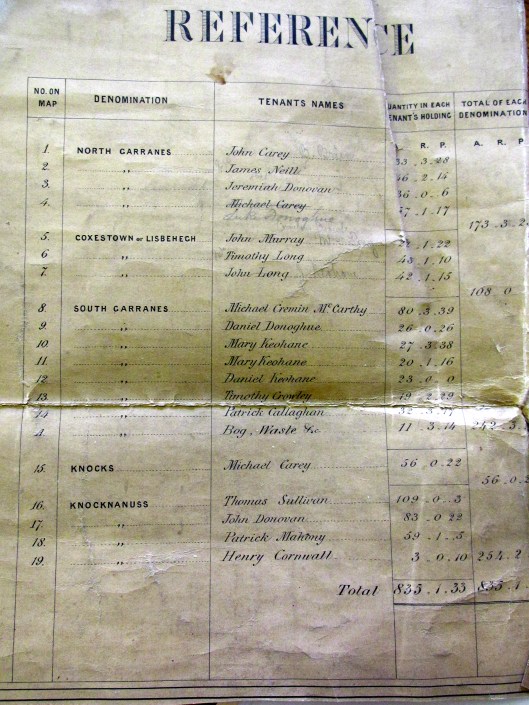 REFERENCE
NO. ON MAP DENOMINATION TENANTS NAMES QUANTITY IN EACH TENANT'S HOLDING TOTAL OF EACH DENOMINATION
R. P. A. R. P.
1. NORTH GARRANES John Carey 3.28
2. " James Neill 2.14
3. " Jeremiah Donovan 36.0.6
4. " Michael Carey 1.17
173.3.2
5. COXESTOWN or LISBEHEGH John Murray 1.22
6 " Timothy Long 43.1.10
7. " John Long 42.1.15
108.0
8. SOUTH GARRANES Michael Cremin McCarthy 80.3.39
9. " Daniel Donoghue 26.0.26
10. " Mary Keohane 27.3.38
11. " Mary Keohane 20.1.16
12. " Daniel Keohane 23.0.0
13. " Timothy Crowley 19.2.29
14 " Patrick Callaghan 32.3
" Bog, Waste &c. 11.3.14 242.3.
15. KNOCKS Michael Carey 56.0.22
56.0.2
16. KNOCKNANUSS Thomas Sullivan 109.0.3
17. " John Donovan 83.0.22
18. " Patrick Mahony 59.1.5
19. " Henry Cornwall 3.0.10 254.2
Total 835.1.33 835.1